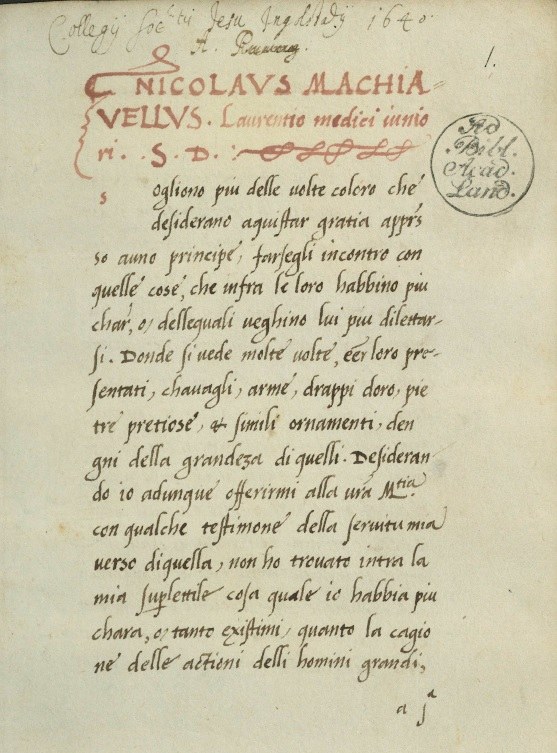 Collegij Soc.tis Jesu Ingolstadij 1640.
A.
1.
NICOLAVS MACHIA-
VELLVS. Laurentio medici iunio
ri. S. D.
Ad
Bibl.
Acad.
Land.
s ogliono piu delle uolte coloro che
desiderano aquistar gratia appres
so auno principe, farsegli incontro con
quelle cose, che infra le loro habbino piu
char, o, dellequali ueghino lui piu dilettar-
si. Donde si uede molte uolte, eer loro pre-
sentati, chauagli, arme, drappi doro, pie
tre pretiose, & simili ornamenti, den
gni della grandeza di quelli. Desideran-
do io adunque offerirmi alla ura M.tia
con qualche testimone della seruitu mia
uerso diquella, non ho trouato intra la
mia suplettile cosa quale io habbia piu
chara, o, tanto existimi, quanto la cagio
ne delle actioni delli homini grandi,
a j